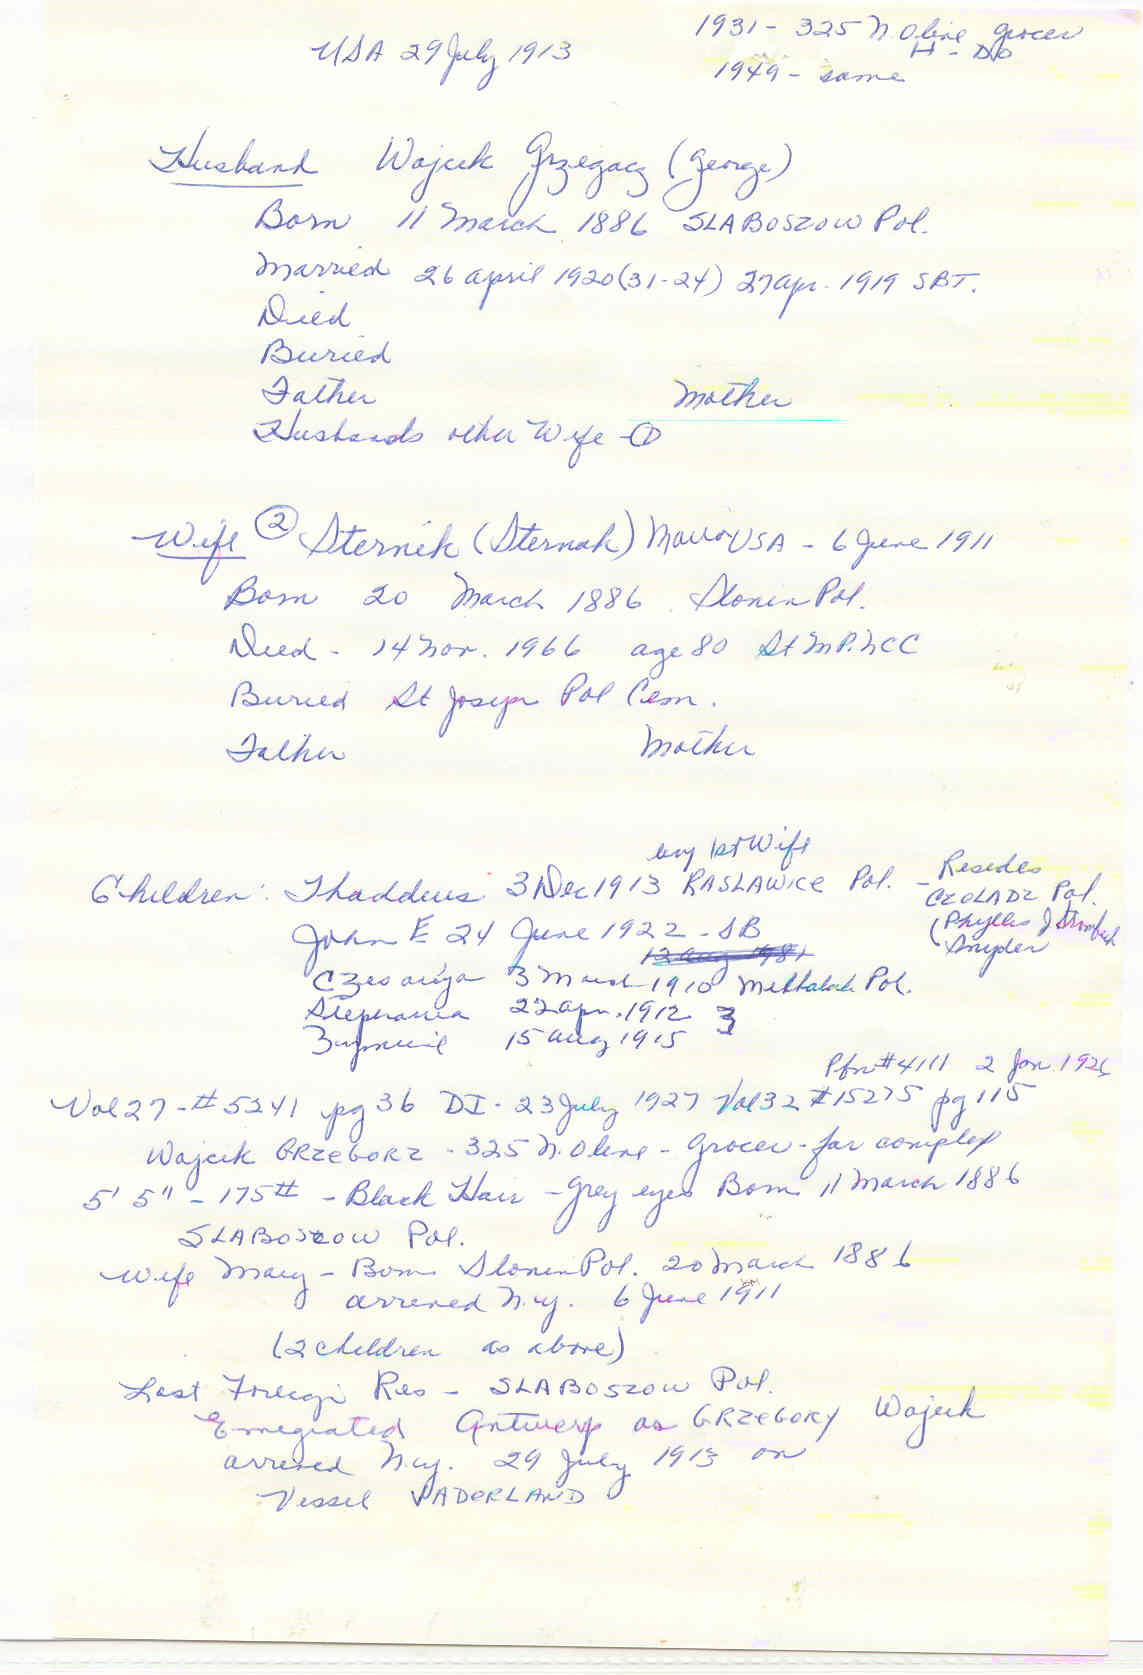 1931 - 325 N. Olive grocer
H - Do
USA 29 July 1913
1949 - same
Husband Wojcik Grzegorz (George)
Born 11 March 1886 SLABOSZOW Pol.
Married 26 april 1920 (31-24) 27 apr. 1919 SBT.
Died
Buried
Father Mother
Husbands other Wife - ①
Wife ② Sternik (Sternak) Maria USA - 6 June 1911
Born 20 March 1886 Slonin Pol.
Died - 14 Nov. 1966 age 80 St M P. NCC
Buried St Joseph Pol Cem.
Father Mother
by 1st Wife
Children: Thaddeus 3 Dec 1913 RASLAWICE Pol. - Resides
CZOLADZ Pol.
John E 24 June 1922 - SB
(Phyllis J
Snyder
12 aug 1981
3 March 1910 Pol.
Stephania 22 apr. 1912 3
15 aug 1915
#4111 2 Jan 1926
Vol 27 - #5241 pg 36 DI - 23 July 1927 Vol 32 #15275 pg 115
Wojcik GRZEGORZ - 325 N. Olive - Grocer - fair complex
5' 5" - 175# - Black Hair - Grey eyes Born 11 March 1886
SLABOSZOW Pol.
Wife Mary - Born Slonin Pol. 20 March 1886
arrived N.y. 6 June 1911
(2 children as above)
Last Foreign Res - SLABOSZOW Pol.
Emegrated Antwerp as GRZEGORY Wojcik
arrived N.y. 29 July 1913 on
Vessel VADERLAND